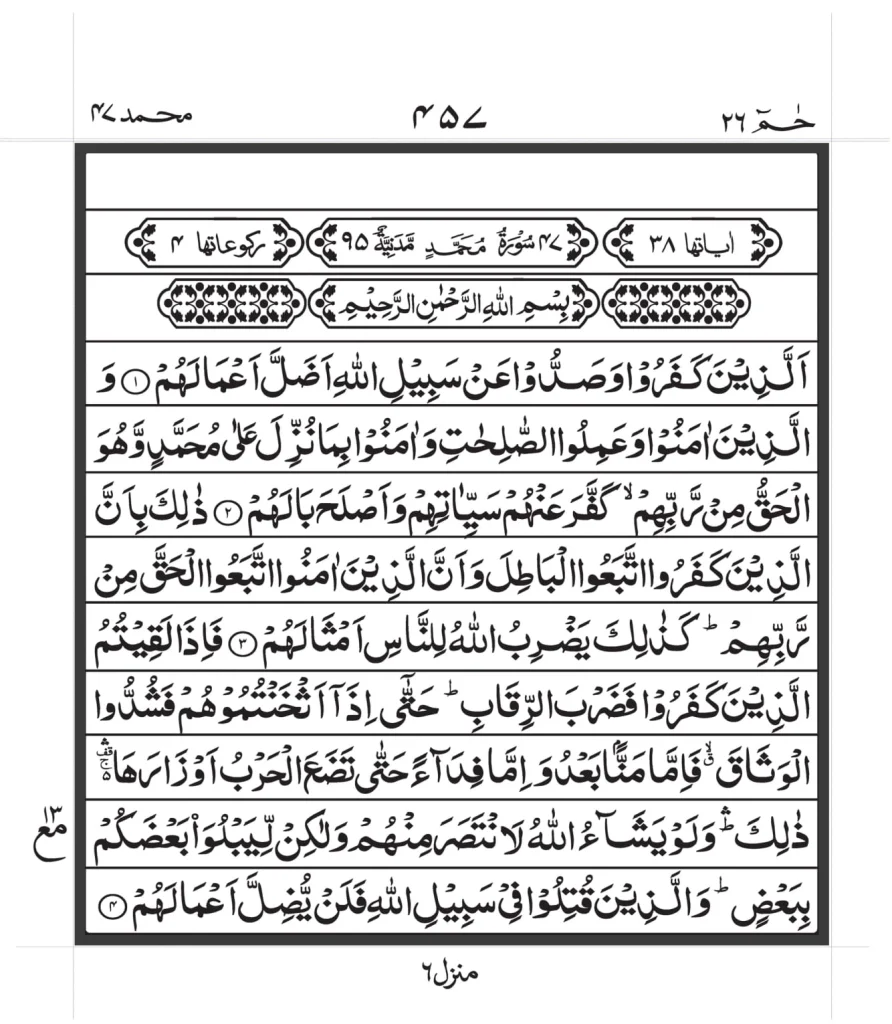 حٰمٓ ٢٦ ۴۵۷ محمد ۴۷
اياتها ٣٨ ۴۷ سُوْرَةُ مُحَمَّدٍ مَّدَنِيَّةٌ ۹۵ ركوعاتها ۴
بِسْمِ اللّٰهِ الرَّحْمٰنِ الرَّحِيْمِ
اَلَّذِيْنَ كَفَرُوْا وَصَدُّوْا عَنْ سَبِيْلِ اللّٰهِ اَضَلَّ اَعْمَالَهُمْ ۝١ وَ
الَّذِيْنَ اٰمَنُوْا وَعَمِلُوا الصّٰلِحٰتِ وَاٰمَنُوْا بِمَا نُزِّلَ عَلٰى مُحَمَّدٍ وَّهُوَ
الْحَقُّ مِنْ رَّبِّهِمْ ۙ كَفَّرَ عَنْهُمْ سَيِّاٰتِهِمْ وَاَصْلَحَ بَالَهُمْ ۝٢ ذٰلِكَ بِاَنَّ
الَّذِيْنَ كَفَرُوا اتَّبَعُوا الْبَاطِلَ وَاَنَّ الَّذِيْنَ اٰمَنُوا اتَّبَعُوا الْحَقَّ مِنْ
رَّبِّهِمْ ؕ كَذٰلِكَ يَضْرِبُ اللّٰهُ لِلنَّاسِ اَمْثَالَهُمْ ۝٣ فَاِذَا لَقِيْتُمُ
الَّذِيْنَ كَفَرُوْا فَضَرْبَ الرِّقَابِ ؕ حَتّٰٓى اِذَاۤ اَثْخَنْتُمُوْهُمْ فَشُدُّوا
الْوَثَاقَ ۙ فَاِمَّا مَنًّۢا بَعْدُ وَاِمَّا فِدَآءً حَتّٰى تَضَعَ الْحَرْبُ اَوْزَارَهَا
ذٰلِكَ ۛؕ وَلَوْ يَشَآءُ اللّٰهُ لَانْتَصَرَ مِنْهُمْ وَلٰكِنْ لِّيَبْلُوَا۟ بَعْضَكُمْ
١٣ مع
بِبَعْضٍ ؕ وَالَّذِيْنَ قُتِلُوْا فِيْ سَبِيْلِ اللّٰهِ فَلَنْ يُّضِلَّ اَعْمَالَهُمْ ۝۴
منزل ٦